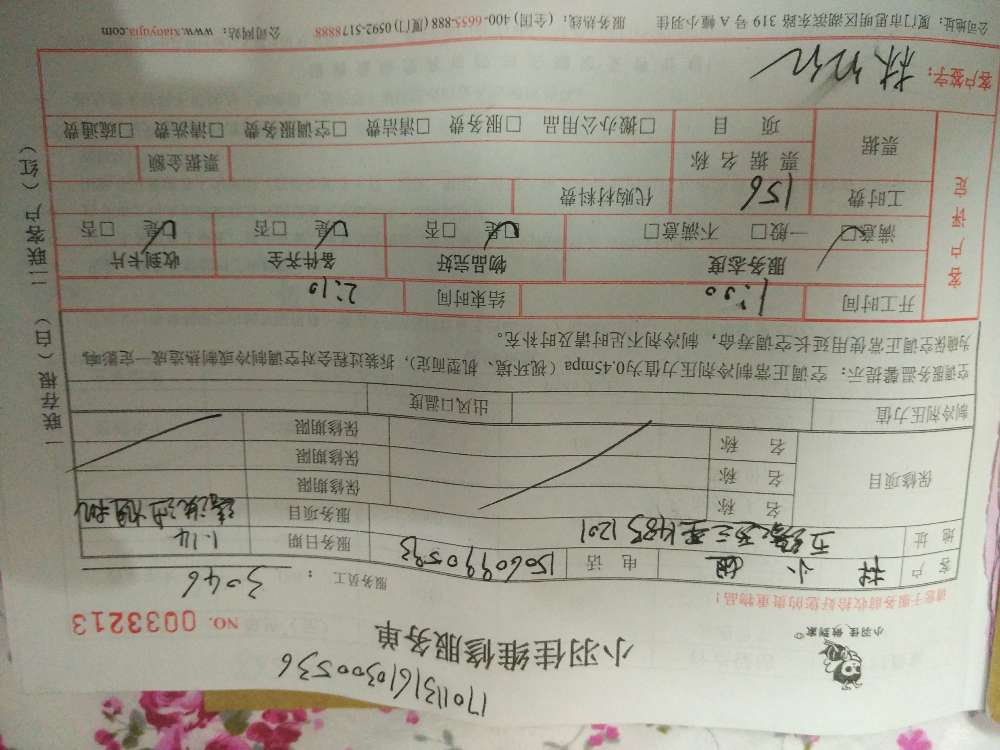 1701131610300536
小羽佳 做到家
小羽佳维修服务单
NO. 0033213
请客于服务前收拾好您的贵重物品!
服务员工: 3046
客户 林小姐 电话 15060990593 服务日期 1.14
地址 1201 服务项目 清洗油烟机
保修项目 名称 保修期限
名称 保修期限
名称 保修期限
制冷剂压力值 出风口温度
空调服务温馨提示: 空调正常制冷剂压力值为0.45mpa (视环境、机型而定), 拆装过程会对空调制冷或制热造成一定影响,
为确保空调正常使用延长空调寿命, 制冷剂不足时请及时补充。
开工时间 1:30 结束时间 2:10
客户评定
服务态度 物品完好 备件齐全 收到卡片
满意☑ 一般□ 不满意□ ☑是 □否 ☑是 □否 ☑是 □否
工时费 156 代购材料费
票据 票据名称 票据金额
项目 □搬办公用品 □服务费 □清洁费 □空调服务费 □清洗费 □疏通费
客户签字: 林
公司地址: 厦门市思明区湖滨东路 319 号 A 幢小羽佳 服务热线: (全国) 400-6655-888 (厦门) 0592-5178888 公司网站: www.xiaoyujia.com
一联存根 (白) 二联客户 (红)